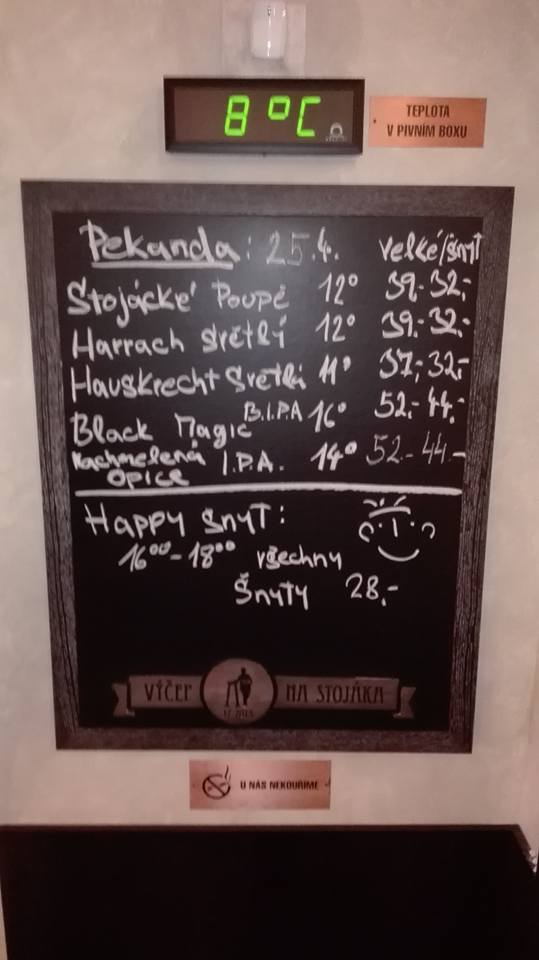 8°C
TEPLOTA
V PIVNÍM BOXU
Pekanda: 25.4. velké/šnyt
Stojácké Poupě 12° 39.- 32,-
Harrach světlí 12° 39.- 32.-
Hauskrecht světlí 11° 37,- 32,-
Black Magic B.I.PA 16° 52.- 44.-
Nachmelená
Opice I.P.A. 14° 52.- 44.-
Happy šnyt:
16⁰⁰-18⁰⁰ všechny
Šnyty 28,-
VÝČEP NA STOJÁKA
U NÁS NEKOUŘÍME